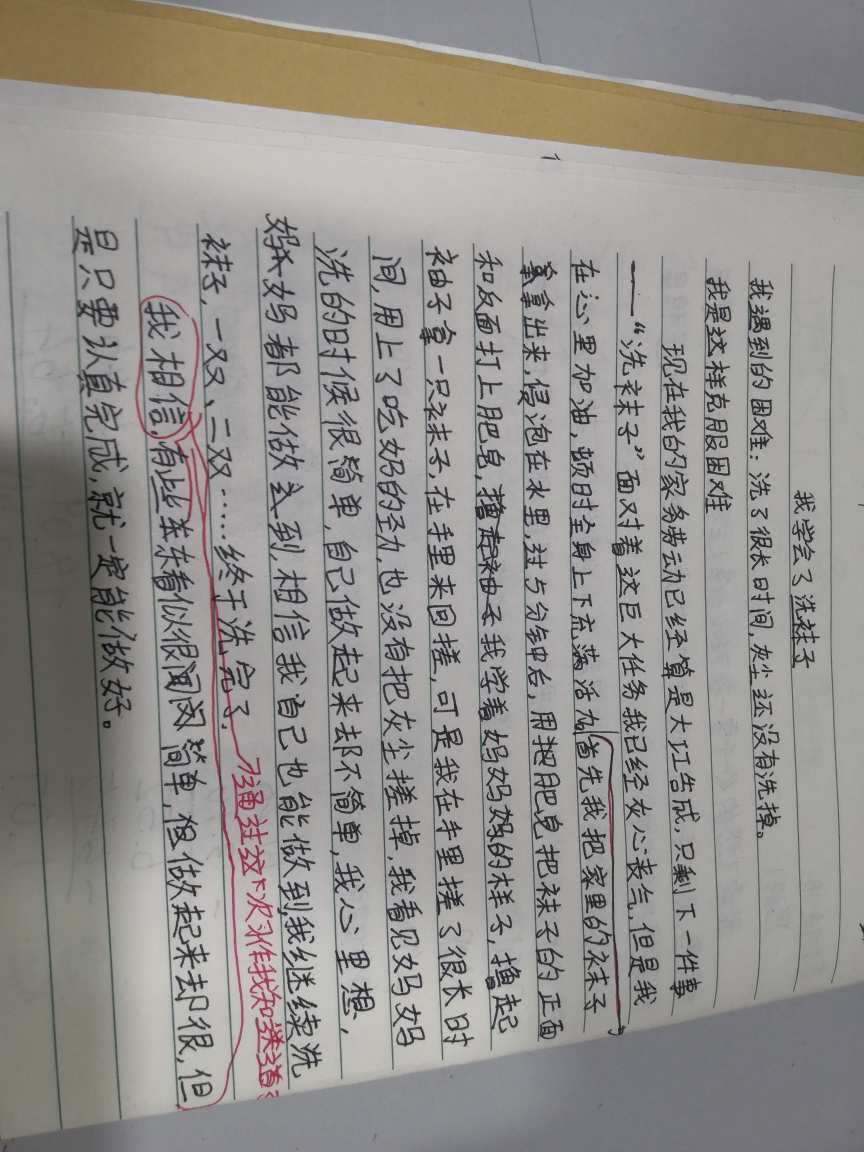 我学会了洗袜子
我遇到的困难：洗了很长时间,灰尘还没有洗掉。
我是这样克服困难
现在我的家务劳动已经算是大功告成,只剩下一件事
——“洗袜子”面对着这巨大任务我已经灰心丧气,但是我
在心里加油,顿时全身上下充满活力首先我把家里的袜子
拿出来,浸泡在水里,过5分钟后,用把肥皂把袜子的正面
和反面打上肥皂,撸起袖子我学着妈妈妈妈的样子,撸起
袖子拿一只袜子,在手里来回搓,可是我在手里搓了很长时
间,用上了吃奶的劲,也没有把灰尘搓掉,我看见妈妈
洗的时候很简单,自己做起来却不简单,我心里想,
妈妈都能做到,相信我自己也能做到,我继续洗
袜子,一双、二双……终于洗完了,
通过这次让我知道
我相信,有些东看似很简单,但做起来却很,但
是只要认真完成,就一定能做好。